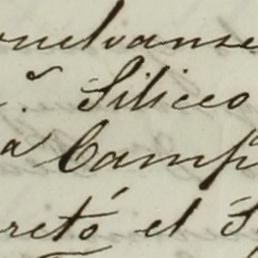 onelvanse
a. Siliceo
a Camp
retó el S